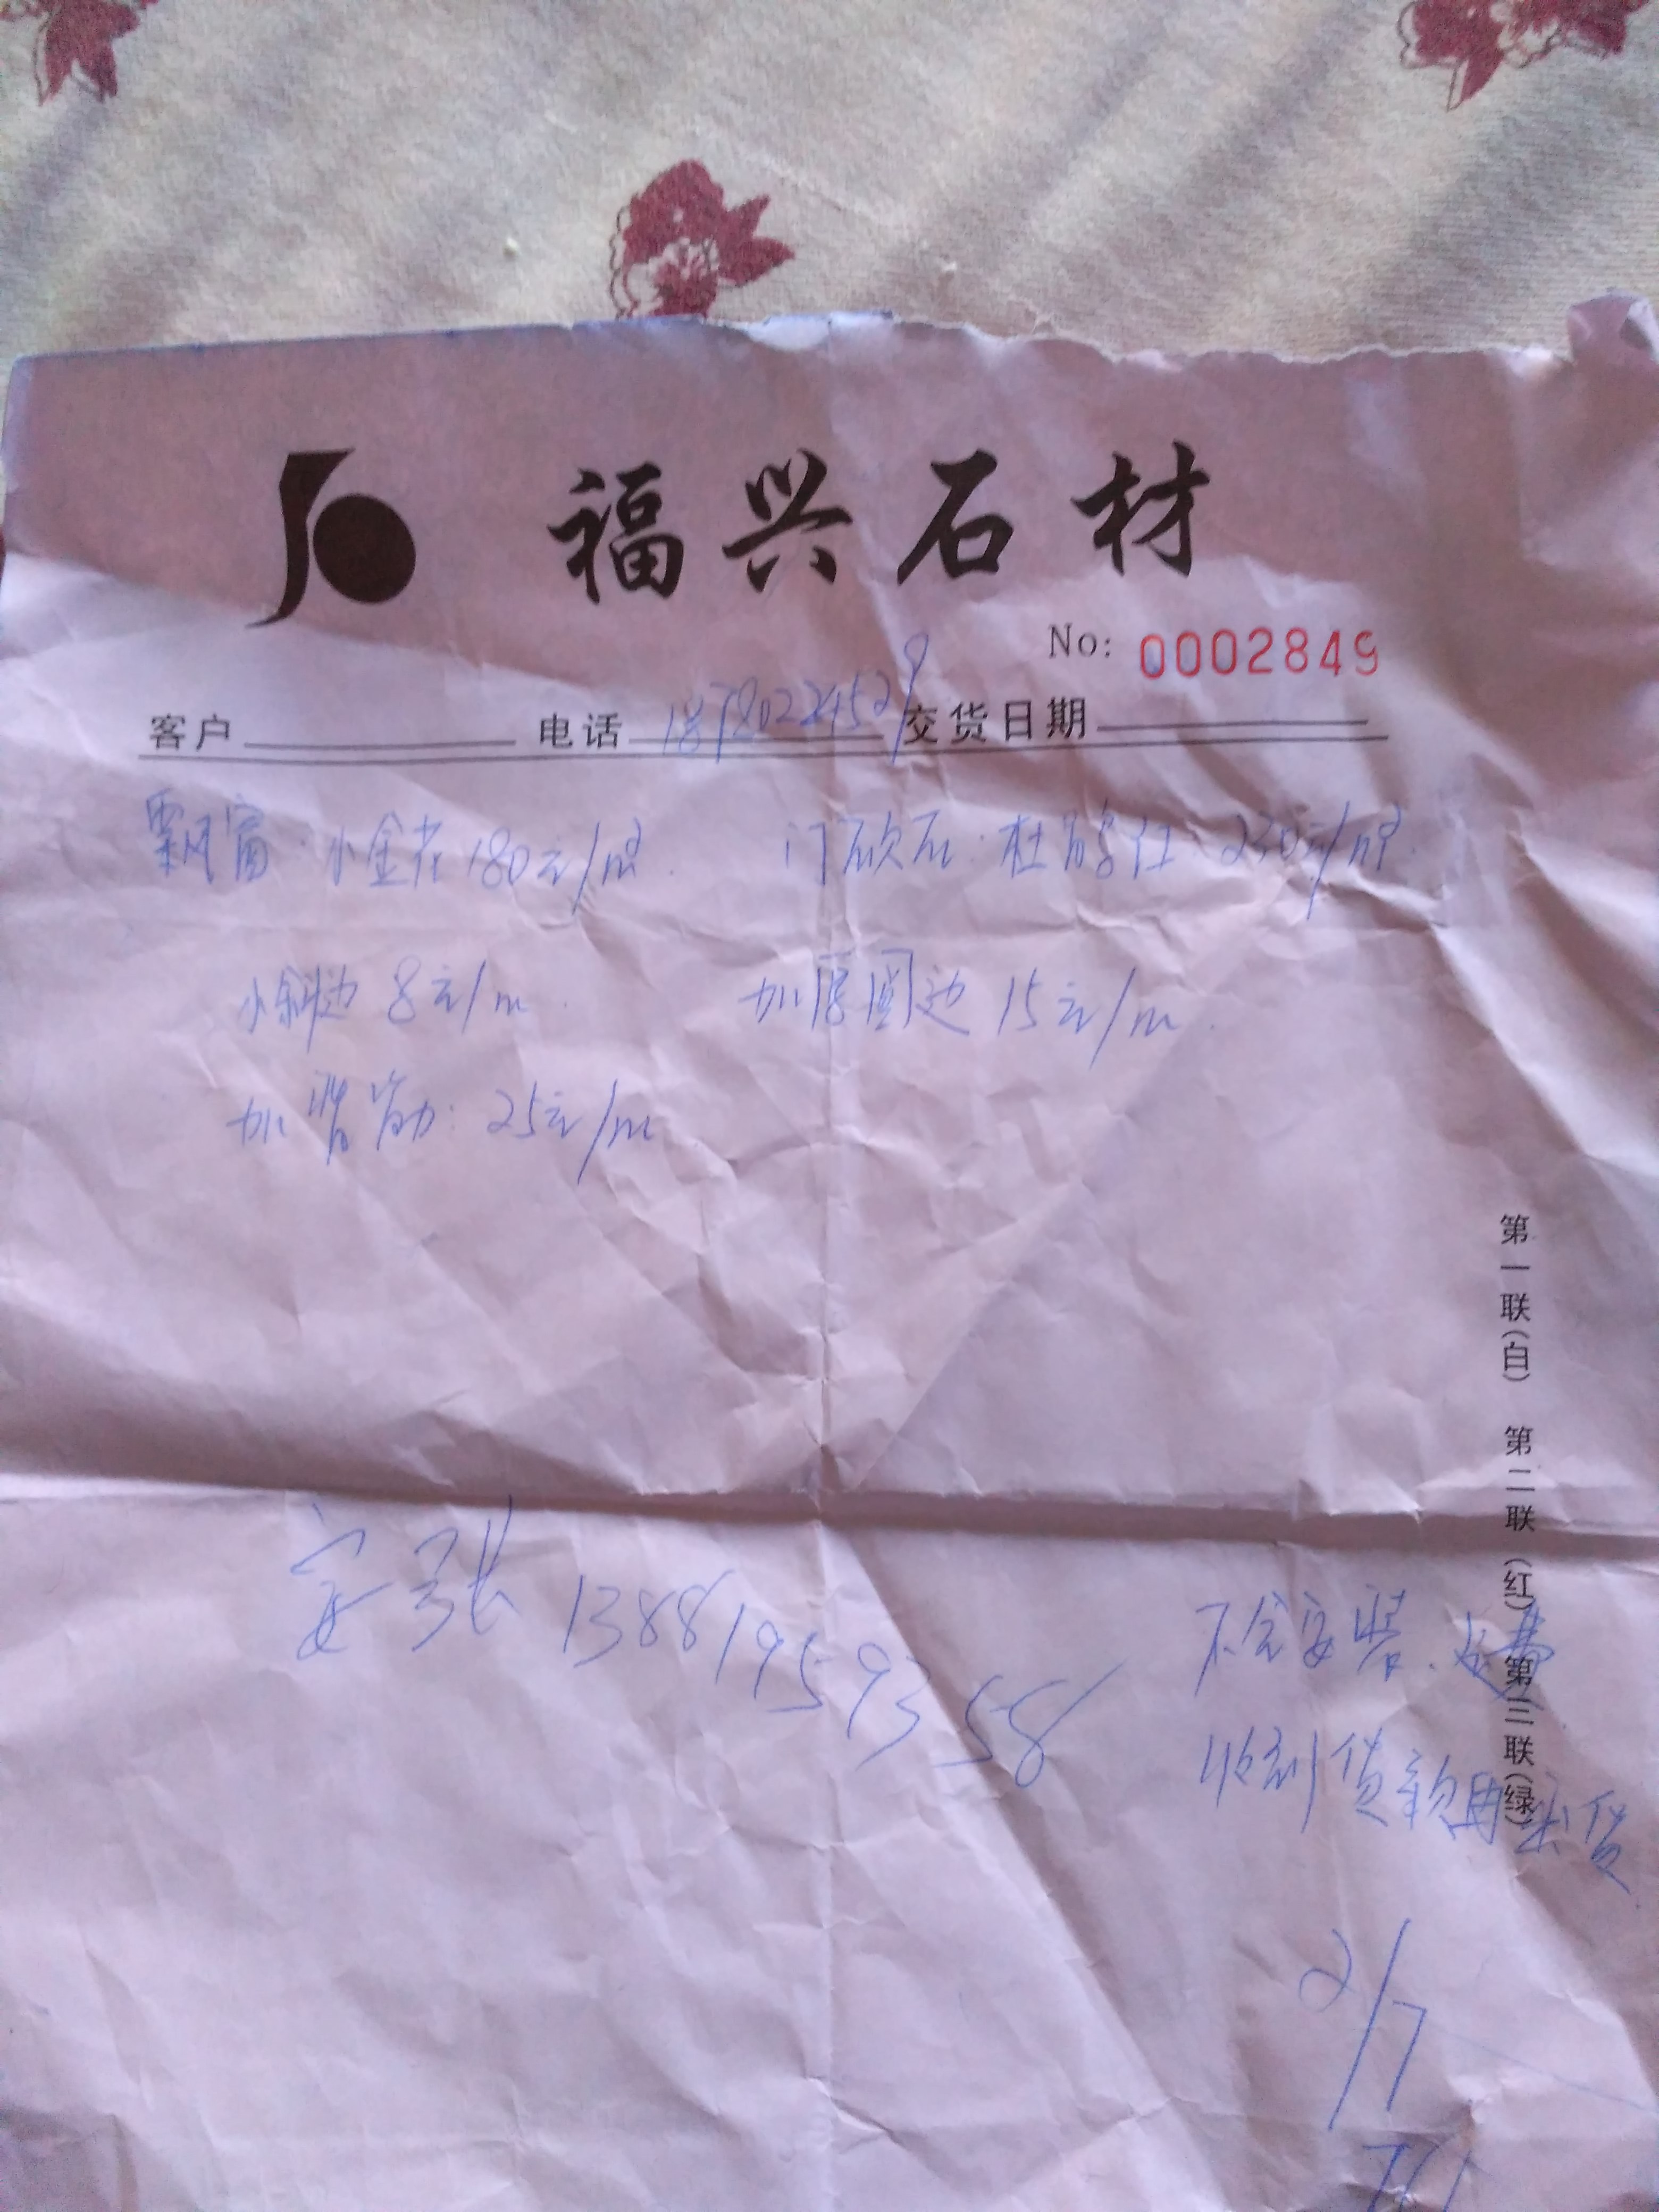 福兴石材
No: 0002849
客户 电话 18780224529 交货日期
飘窗·小金花180元/m² 门砍石·杜鹃红 230元/m²
小斜边 8元/m 加厚圆边 15元/m
加背筋: 25元/m
安张 13881959358
不含安装、运费
收到货款再出货
2/7
第一联(白) 第二联(红) 第三联(绿)